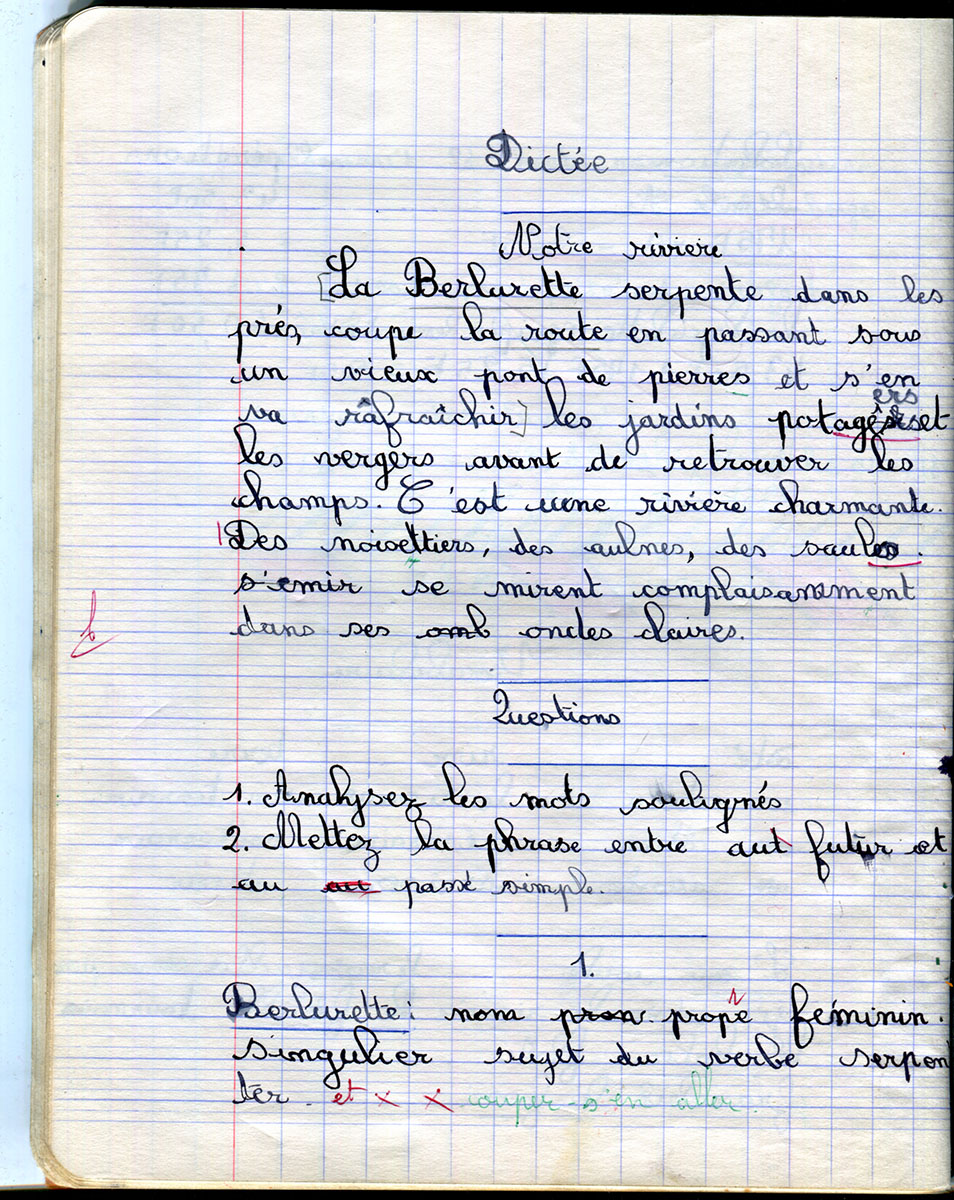 Dictée
Notre riviere
[La Berlurette serpente dans les
prés, coupe la route en passant sous
un vieux pont de pierres et s'en
ers
va râfraîchir] les jardins potagê et
les vergers avant de retrouver les
champs. C'est une rivière charmante.
Des noisettiers, des aulnes, des saules.
s'emir se mirent complaisamment
dans ses omb ondes claires.
Questions
1. Analysez les mots soulignés
2. Mettez la phrase entre aut futur et
au au passé simple.
1.
Berlurette: nom pron. propé féminin.
singulier sujet du verbe serpen
ter. et x x couper - s'en aller.